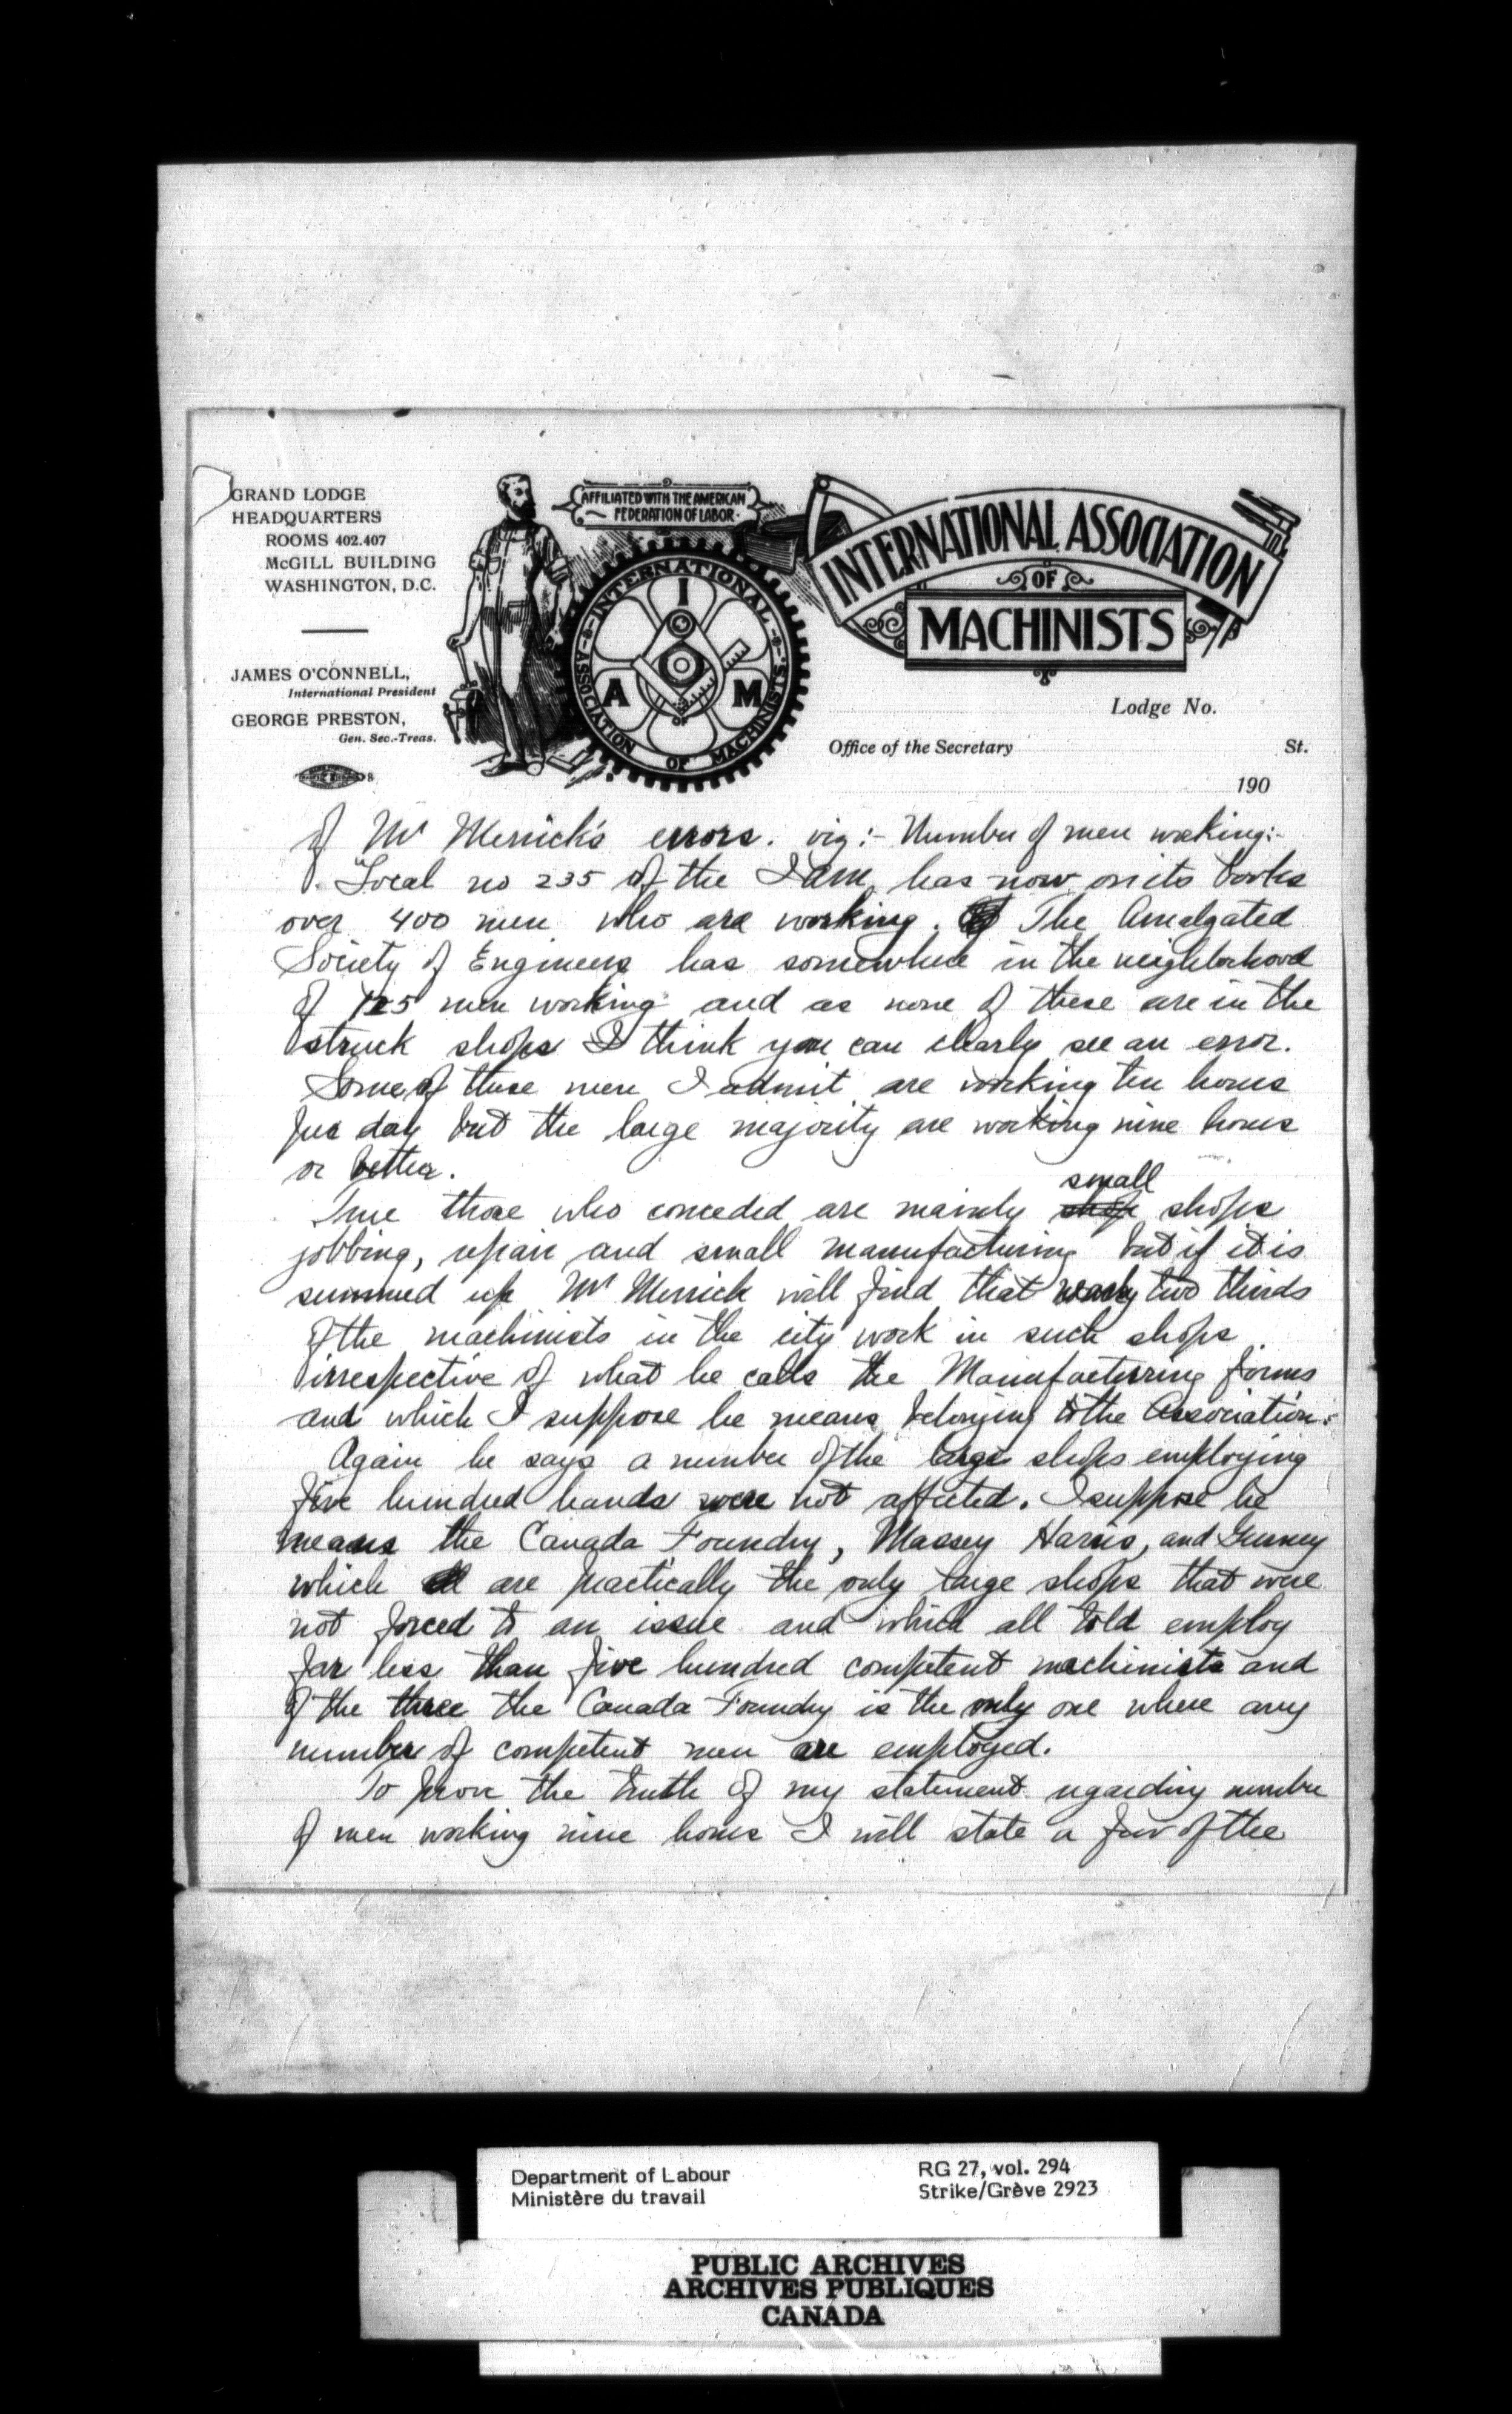 GRAND LODGE
HEADQUARTERS
ROOMS 402.407
McGILL BUILDING
WASHINGTON, D.C.
JAMES O'CONNELL,
International President
GEORGE PRESTON,
Gen. Sec.-Treas.
AFFILIATED WITH THE AMERICAN
FEDERATION OF LABOR.
INTERNATIONAL ASSOCIATION OF MACHINISTS
I A M
INTERNATIONAL ASSOCIATION
OF
MACHINISTS
Lodge No.
Office of the Secretary St.
190
of Mr Merrick's errors. viz:- Number of men working:-
Local no 235 of the I am has now on its books
over 400 men who are working. The Amalgated
Society of Engineers has somewhere in the neighborhood
of 125 men working and as none of these are in the
struck shops I think you can clearly see an error.
Some of these men I admit are working ten hours
per day but the large majority are working nine hours
or better.
small
True those who conceded are mainly shop shops
jobbing, repair and small manufacturing but if it is
summed up Mr Merrick will find that nearly two thirds
of the machinists in the city work in such shops
irrespective of what he calls the Manufacturing firms
and which I suppose he means belonging to the Association.
Again he says a number of the large shops employing
five hundred hands were not affected. I suppose he
means the Canada Foundry, Massey Harris, and Gurney
which all are practically the only large shops that were
not forced to an issue and which all told employ
far less than five hundred competent machinists and
of the three the Canada Foundry is the only one where any
number of competent men are employed.
To prove the truth of my statement regarding number
of men working nine hours I will state a few of the
Department of Labour
Ministère du travail
RG 27, vol. 294
Strike/Grève 2923
PUBLIC ARCHIVES
ARCHIVES PUBLIQUES
CANADA